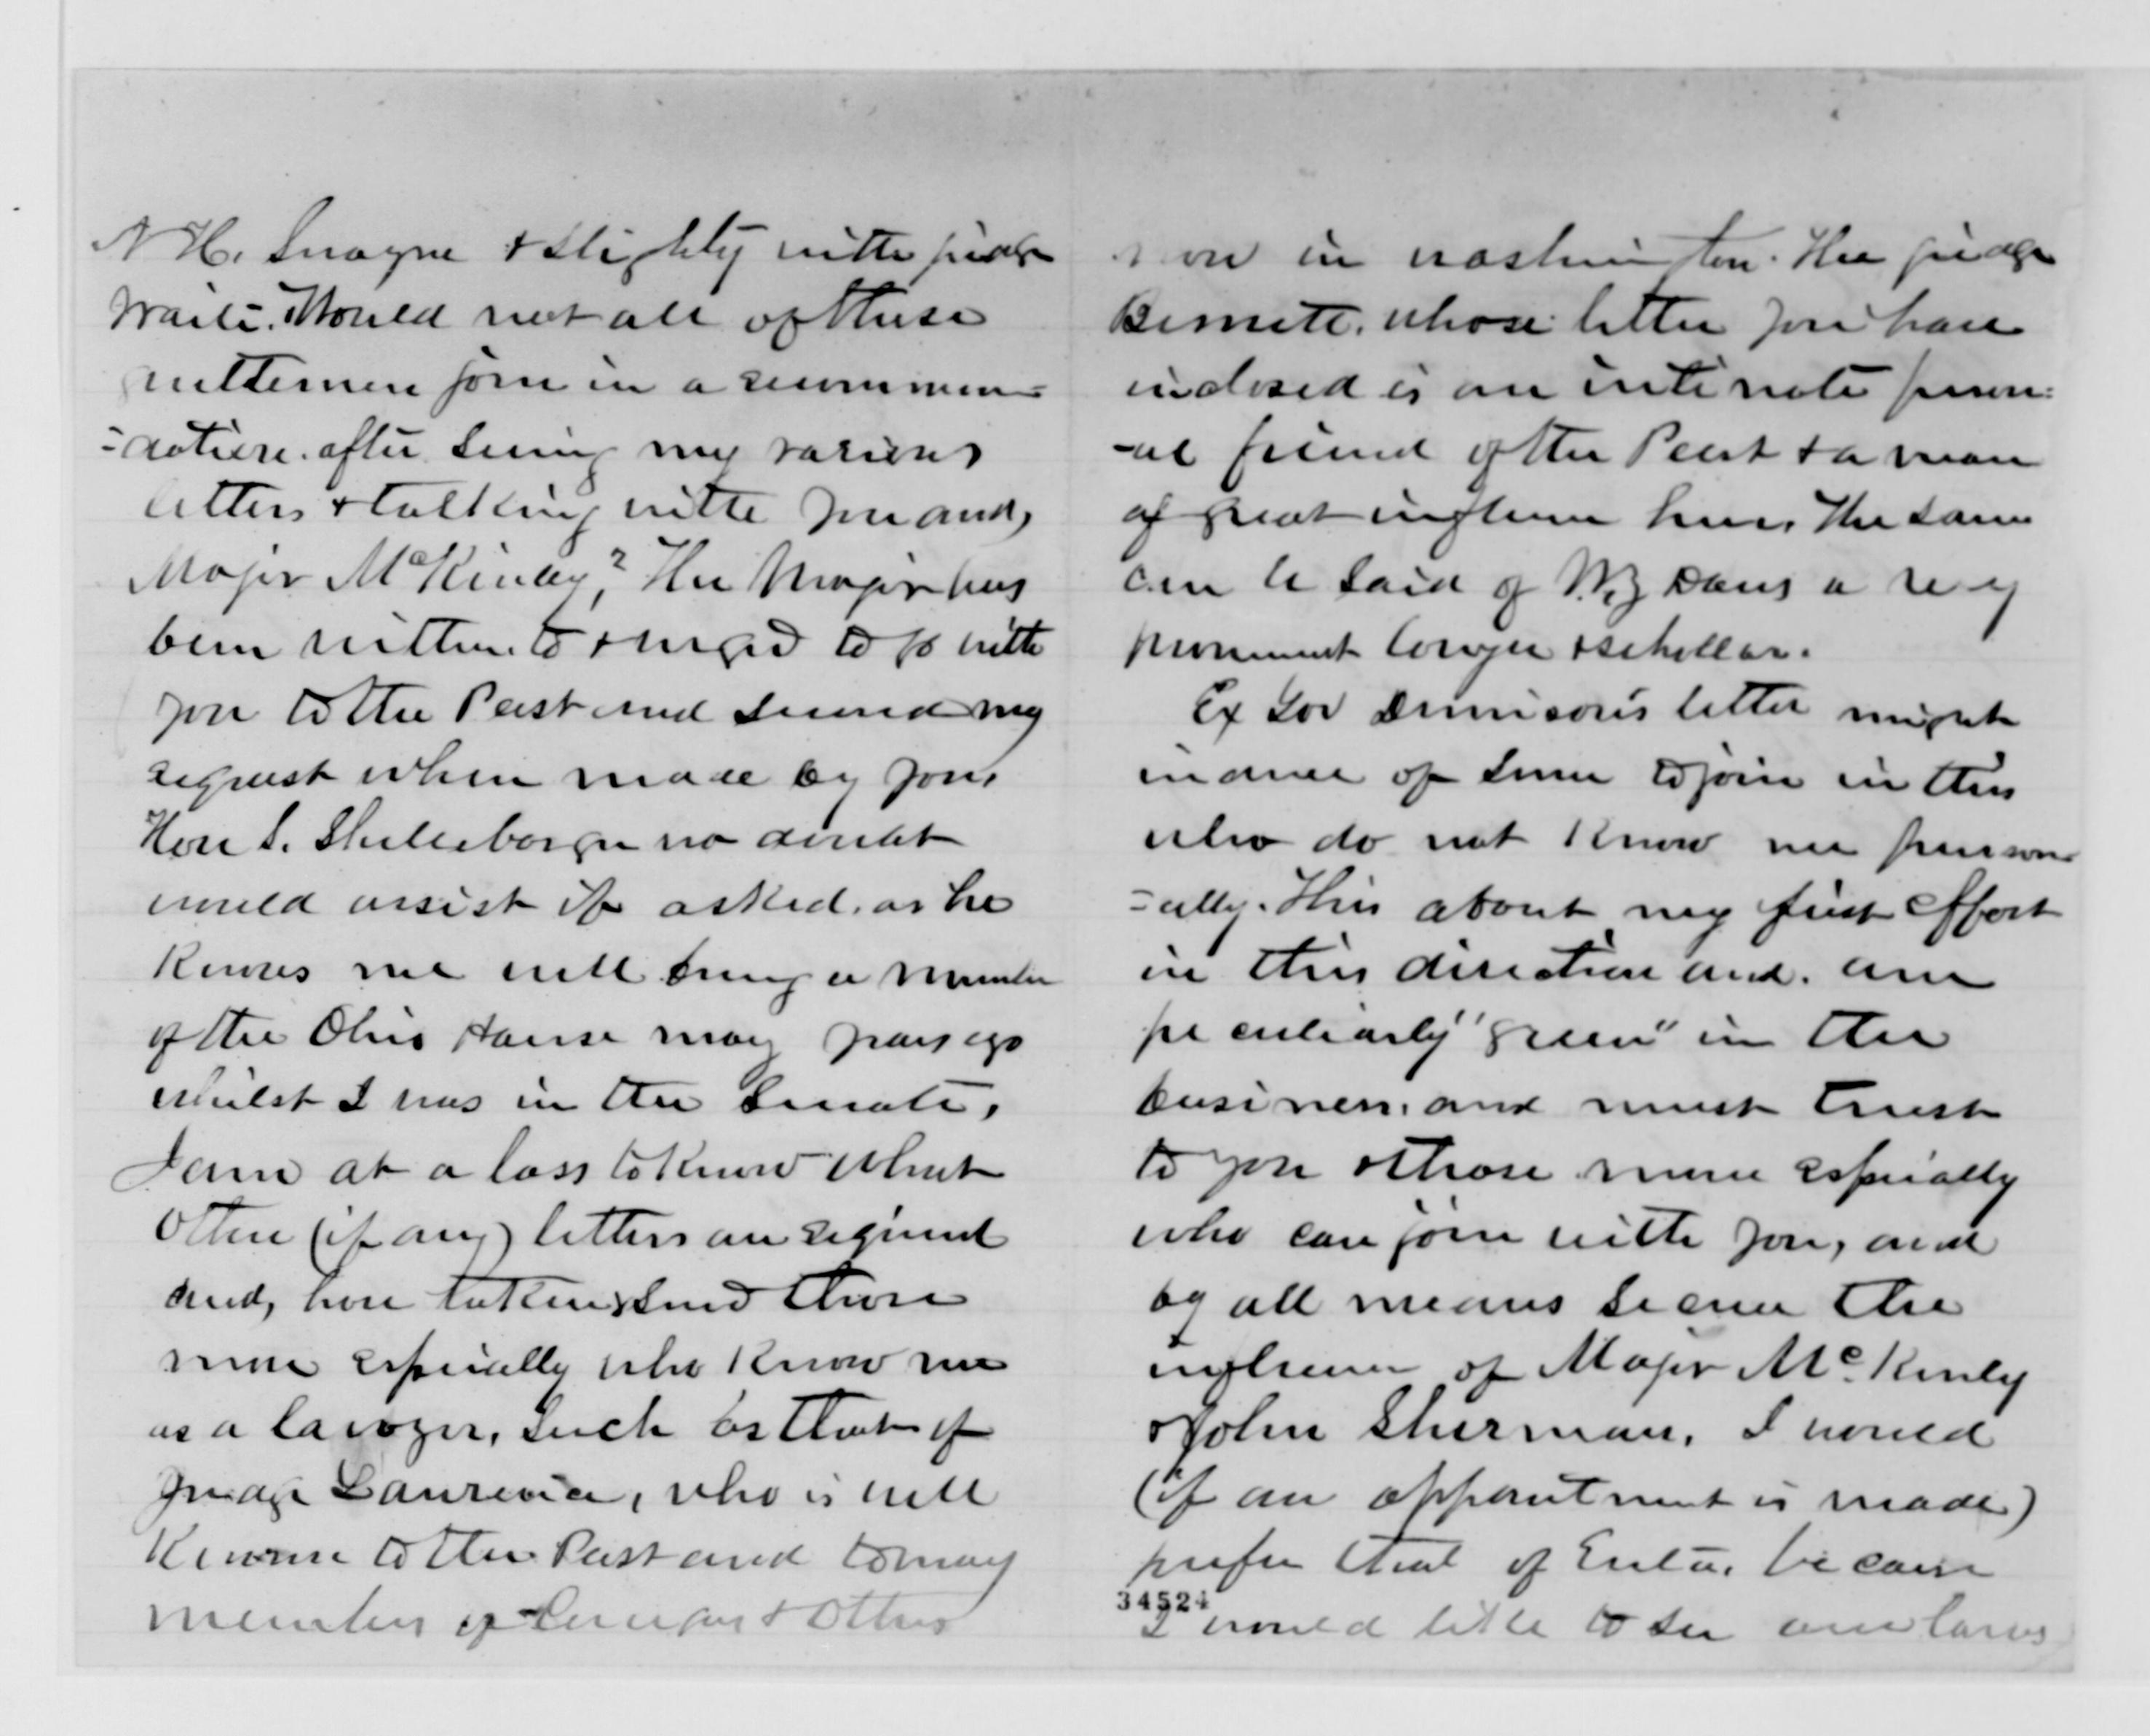 N H. Swayne & slightly with judge
Waite. Would not all of these
gentlemen join in a recommen-
-dation. after seeing my various
letters & talking with you and,
Major McKinley? The Major has
been written to & urged to go with
you to the Pest and second my
request when made by you,
Hon S. Shellebarger no doubt
would assist if asked. as he
knows me well being a member
of the Ohio House may years ago
whilst I was in the Senate,
I am at a loss to know what
other (if any) letters are required
and, have taken, send those
more espicially who know me
as a lawyer, such as that of
Judge Laurence, who is well
known to the Pest and to many
members of Congress & others
now in washington. The judge
Bennett. whose letter you have
inclosed is an intimate person-
-al friend of the Pest & a man
of great influence here, the same
can be said of Davis a very
prominent lawyer & schollar.
Ex Gov Dennison's letter might
induce of some to join in this
who do not know me person-
-ally. This about my first effort
in this direction and. am
peculiarly "green" in the
business. and must trust
to you & those more espicially
who can join with you, and
by all means secure the
influence of Major McKinly
& John Sherman. I would
(if an appointment is made)
prefer that of because
34524
I would like to see our laws